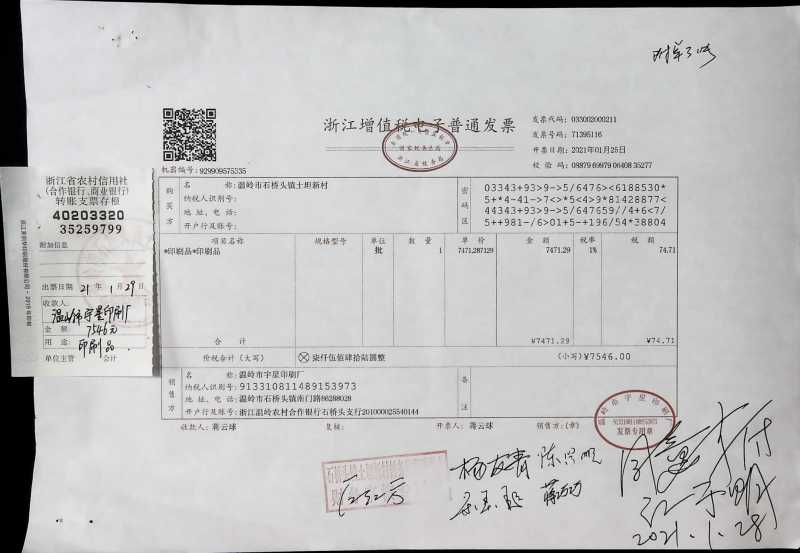 浙江增值税电子普通发票
发票代码: 033002000211
发票号码: 71395116
开票日期: 2021年01月25日
校验码: 09879 69879 06408 35277
机器编号: 929909575335
购买方
名称: 温岭市石桥头镇土坦新村
纳税人识别号:
地址、电话:
开户行及账号:
密码区
03343+93>9->5/6476><6188530*
5+*4-41-7<*>*5<4>9*81428877<
44343+93>9->5/647659//4+6<7/
5++981-/6>01+5-+196/54*38804
项目名称 规格型号 单位 数量 单价 金额 税率 税额
*印刷品*印刷品 批 1 7471.287129 7471.29 1% 74.71
合计 ¥7471.29 ¥74.71
价税合计（大写） ⊗柒仟伍佰肆拾陆圆整 (小写)¥7546.00
销售方
名称: 温岭市宇星印刷厂
纳税人识别号: 913310811489153973
地址、电话: 温岭市石桥头镇南门路86288028
开户行及账号: 浙江温岭农村合作银行石桥头支行201000025540144
备注
收款人: 蒋云球 复核: 开票人: 蒋云球 销售方: (章)
浙江省农村信用社
(合作银行、商业银行)
转账支票存根
40203320
35259799
附加信息
出票日期 21年1月29日
收款人:
温岭市宇星印刷厂
金额 7546元
用途: 印刷品
单位主管 会计
国家税务总局
浙江省税务局
温岭市宇星印刷厂
913310811489153973
发票专用章
同意支付
2021.1.28